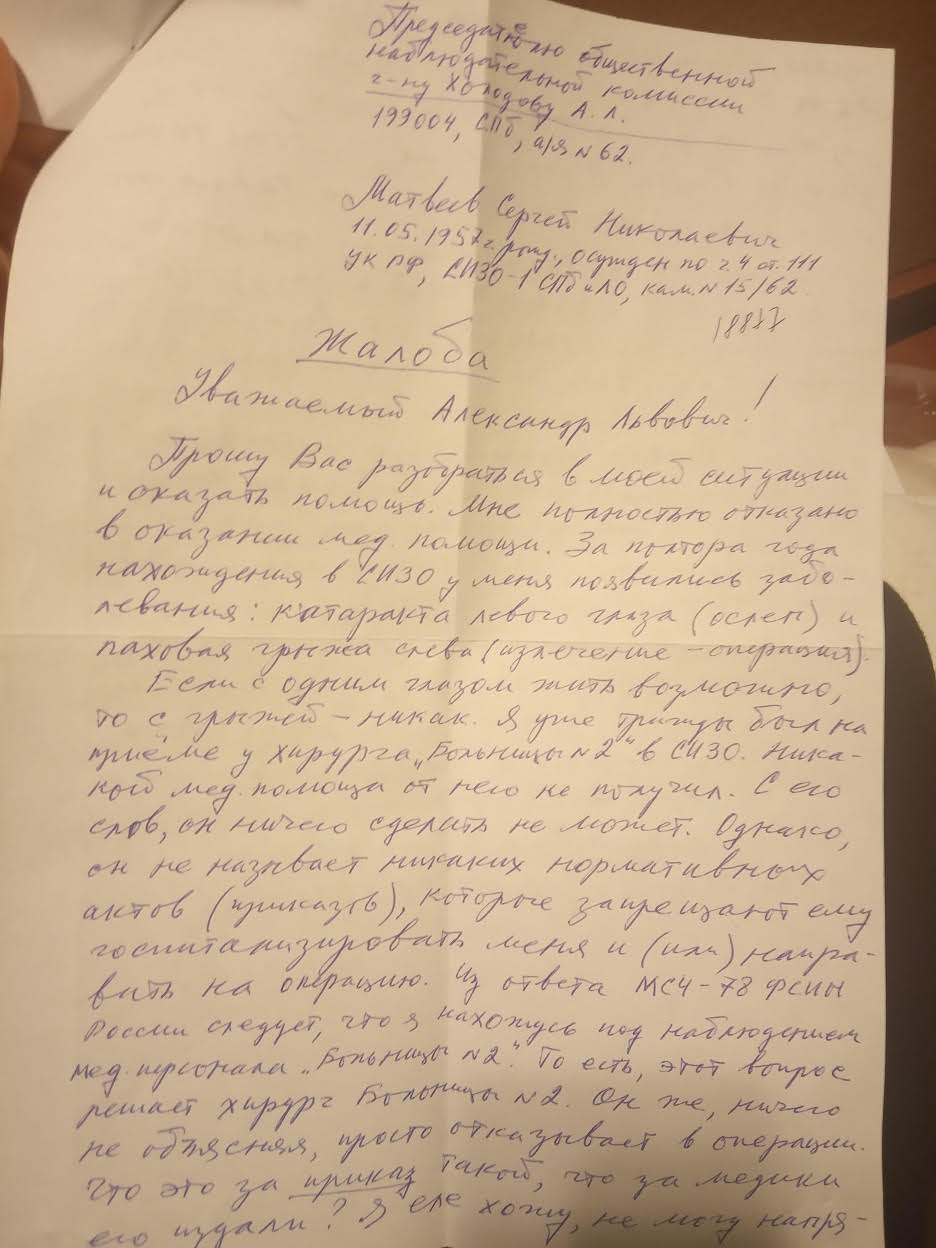 Председателю общественной
наблюдательной комиссии
г-ну Холодову А. Л.
199004, СПб, а/я N 62.
Матвеев Сергей Николаевич
11.05.1957 г. рожд., осужден по ч. 4 ст. 111
УК РФ, СИЗО-1 СПб и ЛО, кам. N 15/62
18877
Жалоба
Уважаемый Александр Львович!
Прошу Вас разобраться в моей ситуации
и оказать помощь. Мне полностью отказано
в оказании мед. помощи. За полтора года
нахождения в СИЗО у меня появились забо-
левания: катаракта левого глаза (ослеп) и
паховая грыжа слева (излечение - операция).
Если с одним глазом жить возможно,
то с грыжей - никак. Я уже трижды был на
приёме у хирурга „Больницы N 2" в СИЗО. Ника-
кой мед. помощи от него не получил. С его
слов, он ничего сделать не может. Однако,
он не называет никаких нормативных
актов (приказов), которые запрещают ему
госпитализировать меня и (или) напра-
вить на операцию. Из ответа МСЧ-78 ФСИН
России следует, что я нахожусь под наблюдением
мед. персонала „Больницы N 2". То есть, этот вопрос
решает хирург Больницы N 2. Он же, ничего
не объясняя, просто отказывает в операции.
Что это за приказ такой, что за медики
его издали? Я еле хожу, не могу напря-